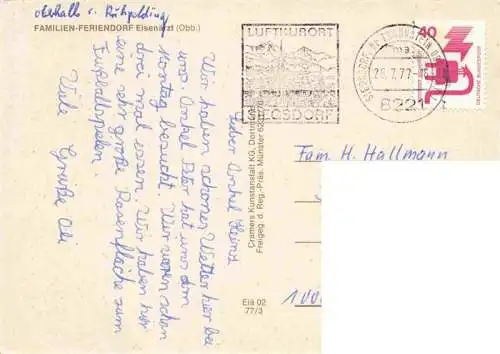 oberhalb v. Ruhpolding
FAMILIEN-FERIENDORF Eisenärzt (Obb.)
Lieber Onkel Heinz
Wir haben schönes Wetter hier bei
uns. Onkel Peter hat uns am
Montag besucht. Wir waren schon
drei mal essen. Wir haben hier
eine sehr große Rasenfläche zum
Fußballspielen.
Viele Grüße Oli
Cramers Kunstanstalt KG, Dortmund
Freigeg. d. Reg.-Präs. Münster
Eiä 02
77/3
LUFTKURORT
SIEGSDORF
SIEGSDORF
26.7.77
ma
8221
40
DEUTSCHE BUNDESPOST
Fam. H. Hallmann
1000